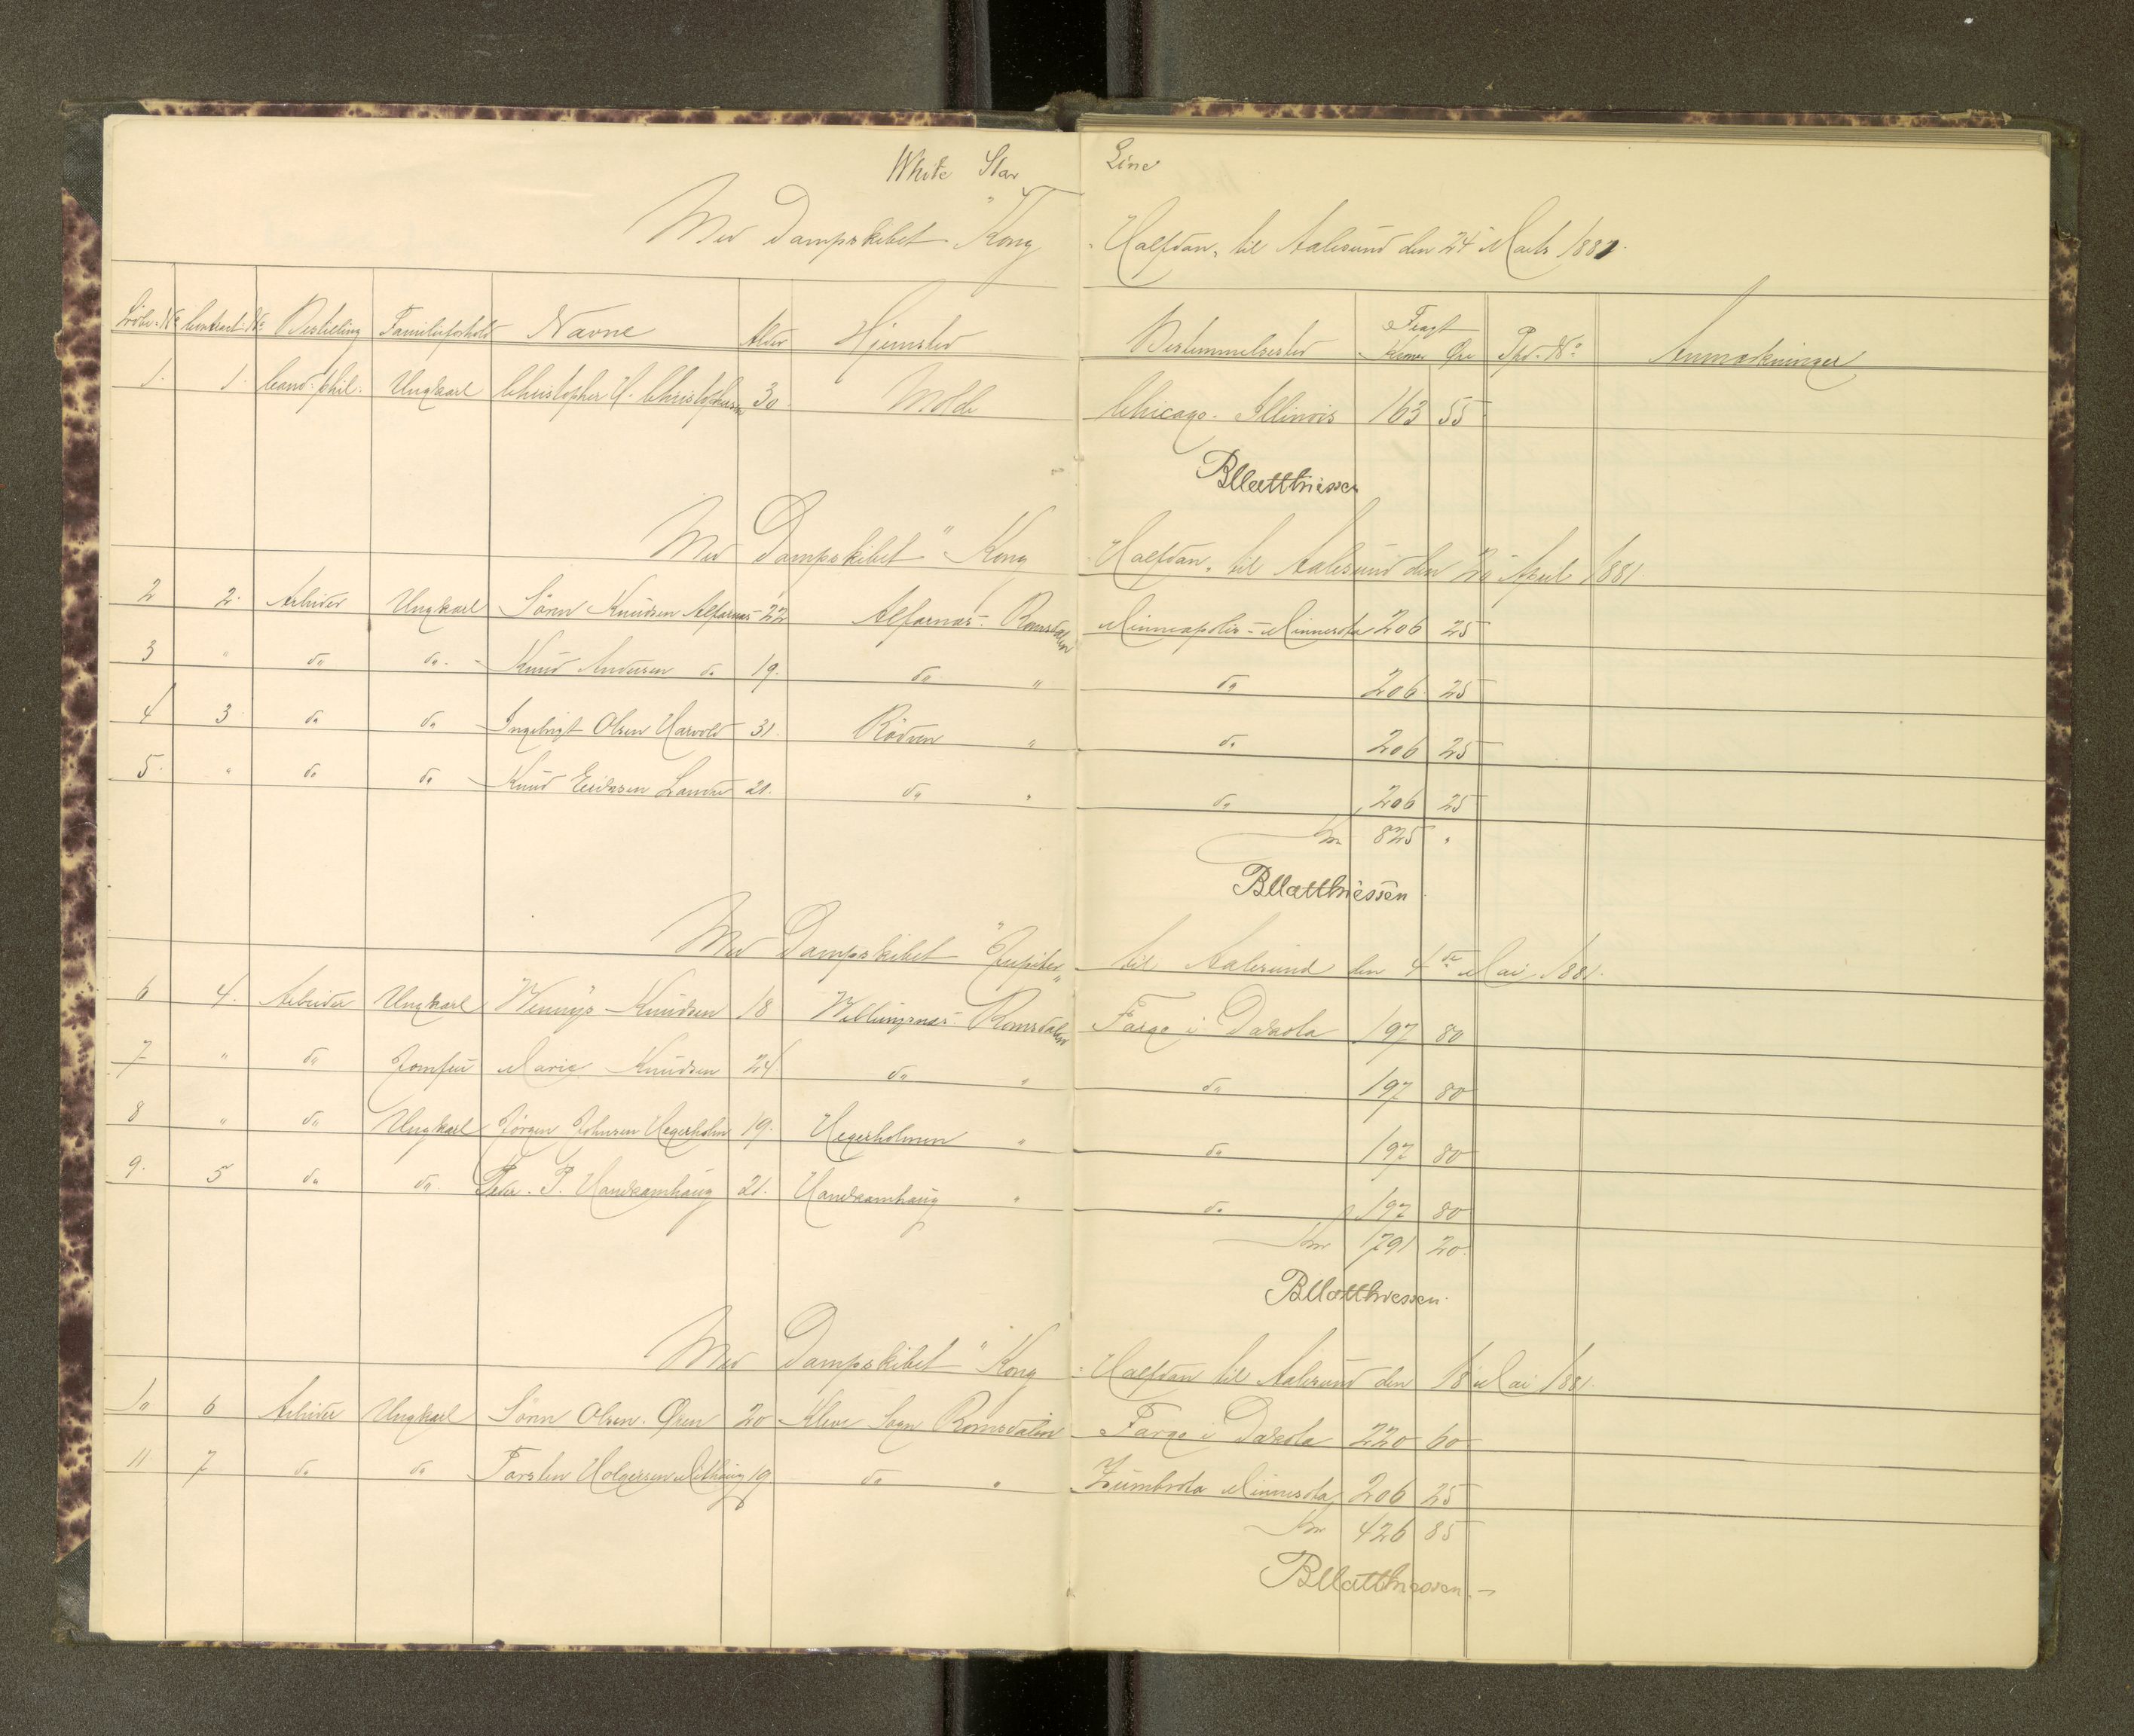 White Star Line
Med Dampskibet "Kong Halfdan" til Aalesund den 24 Marts 1881.
Löbe-No Contract-No Bestilling Familieforhold Navne Alder Hjemsted Bestemmelsessted Fragt Kroner Øre Pas-No Anmærkninger
1. 1. Cand. phil. Ungkarl Christopher H. Christophersen 30. Molde Chicago. Illinois 163 55
BMatthiessen
Med Dampskibet "Kong Halfdan" til Aalesund den 20 April 1881.
2 2. Arbeider Ungkarl Sören Knudsen Alfarnæs 22 Alfarnæs. Romsdalen Minneapolis - Minnesota 206 25
3 " do do. Knud Andersen do 19. do " do 206 25
4 3 do do Ingebrigt Olsen Harvold 31. Rödven " do 206 25
5. " do do Knud Eriksen 21. do " do 206 25
Kr 825 "
BMatthiessen
Med Dampskibet "Jupiter" til Aalesund den 4de Mai 1881.
6 4. Arbeider Ungkarl Knudsen 18 Romsdalen Fargo i Dakota 197 80
7 " do Jomfru Marie Knudsen 24 do " do 197 80
8 " do Ungkarl Jörgen Johnsen Hegerholm 19. Hegerholmen " do 197 80
9. 5 do do Peder. P. Handkamhaug 21. Handkamhaug " do 197 80
Kr 791 20.
BMatthiessen.
Med Dampskibet "Kong Halfdan til Aalesund den 18 Mai 1881.
10 6 Arbeider Ungkarl Sören Olsen. Øren 20 Kleve Sogn Romsdalen Fargo i Dakota 220 60
11 7 do do Torsten Holgersen 19 do " Zumbrota Minnesota 206 25
Kr 426 85
BMatthiessen.